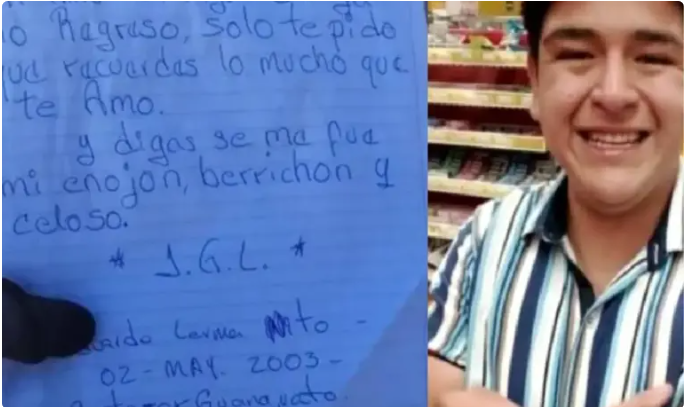 no Regreso, solo te pido
que recuerdas lo mucho que
te Amo.
y digas se me fue
mi enojon, berrichon y
celoso.
* J.G.L. *
Lerma Nito -
02 - MAY. 2003 -
Guanajuato.